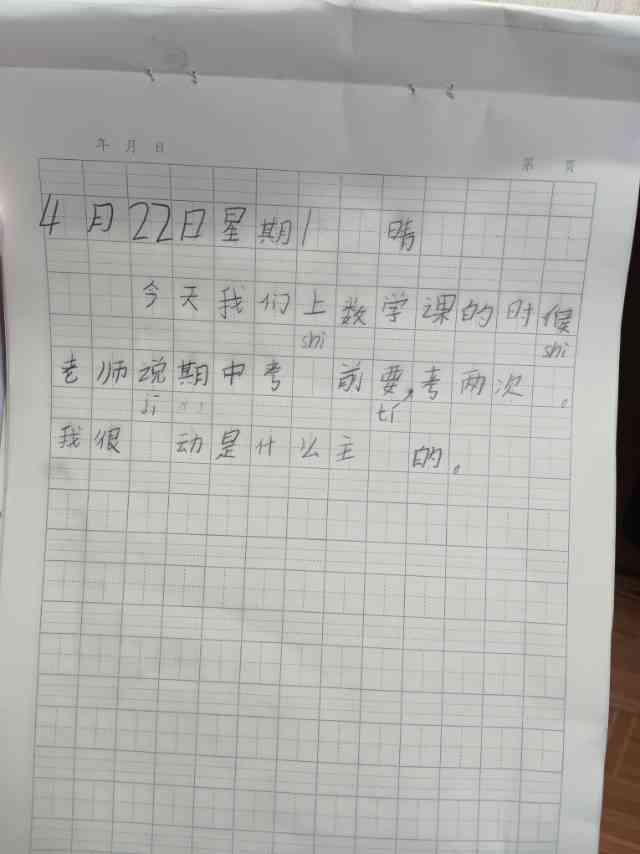 年 月 日 第 页
4月22日星期1 晴
今天我们上数学课的时候
shi shi
老师说期中考 前要,考两次 。
ji tí
我很 动是什么主 的。